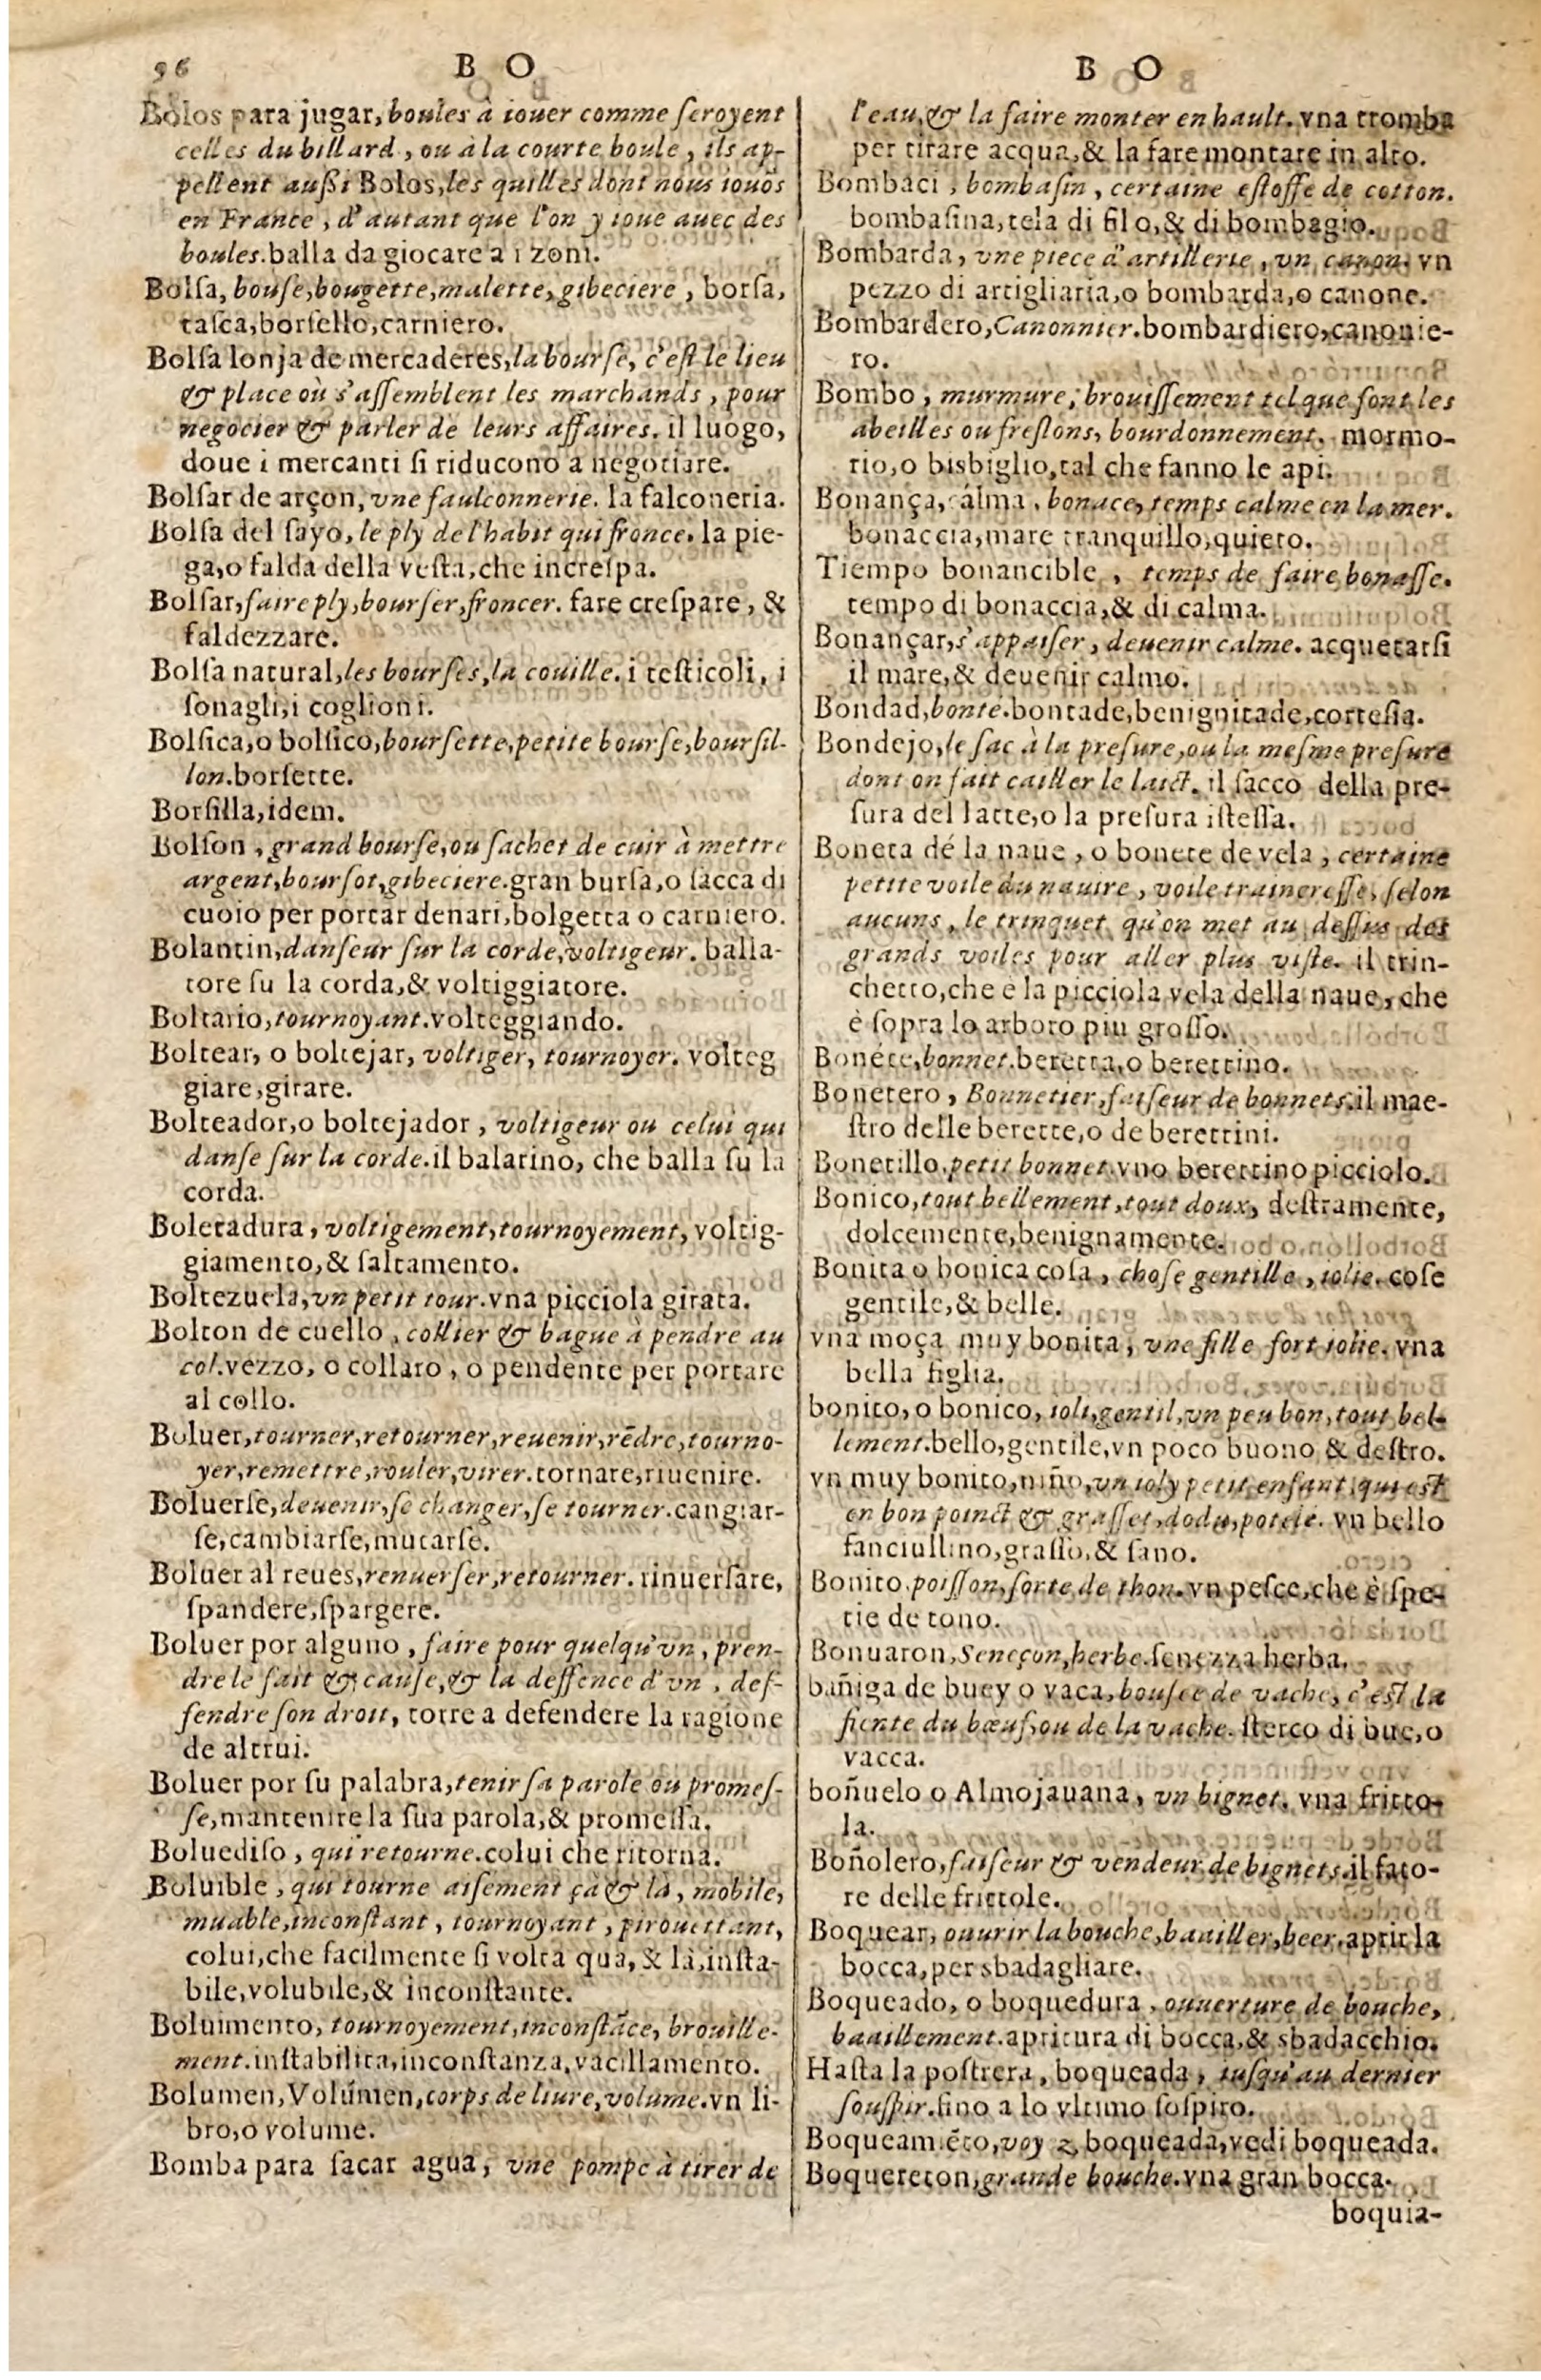 96 B O
Bolos para jugar, boules à iouer comme ſeroyent
celles du billard, ou à la courte boule, ils ap-
pellent außi Bolos, les quilles dont nous iouõs
en France, d'autant que l'on y ioue auec des
boules. balla da giocare a i zoni.
Bolſa, bouſe, bougette, malette, gibeciere, borſa,
taſca, borſello, carniero.
Bolſa lonja de mercaderes, la bourſe, c'eſt le lieu
& place où s'aſſemblent les marchands, pour
negocier & parler de leurs affaires. il luogo,
doue i mercanti ſi riducono a negotiare.
Bolſar de arçon, vne faulconnerie. la falconeria.
Bolſa del ſayo, le ply de l'habit qui fronce. la pie-
ga, o falda della veſta, che increſpa.
Bolſar, faire ply, bourſer, froncer. fare creſpare, &
faldezzare.
Bolſa natural, les bourſes, la couille. i teſticoli, i
ſonagli, i coglioni.
Bolſica, o bolſico, bourſette, petite bourſe, bourſil-
lon. borſette.
Borſilla, idem.
Bolſon, grand bourſe, ou ſachet de cuir à mettre
argent, bourſot, gibeciere. gran burſa, o ſacca di
cuoio per portar denari, bolgetta o carniero.
Bolantin, danſeur ſur la corde, voltigeur. balla-
tore ſu la corda, & voltiggiatore.
Boltario, tournoyant. volteggiando.
Boltear, o boltejar, voltiger, tournoyer. volteg
giare, girare.
Bolteador, o boltejador, voltigeur ou celui qui
danſe ſur la corde. il balatino, che balla ſu la
corda.
Boletadura, voltigement, tournoyement, voltig-
giamento, & ſaltamento.
Boltezuela, vn petit tour. vna picciola girata.
Bolton de cuello, collier & bague à pendre au
col. vezzo, o collaro, o pendente per portare
al collo.
Boluer, tourner, retourner, reuenir, rẽdre, tourno-
yer, remettre, rouler, virer. tornare, riuenire.
Boluerſe, deuenir, ſe changer, ſe tourner. cangiar-
ſe, cambiarſe, mutarſe.
Boluer al reues, renuerſer, retourner. rinuerſare,
ſpandere, ſpargere.
Boluer por alguno, faire pour quelqu'vn, pren-
dre le fait & cauſe, & la deffence d'vn, def-
fendre ſon droit, torre a defendere la ragione
de altrui.
Boluer por ſu palabra, tenir ſa parole ou promeſ-
ſe, mantenire la ſua parola, & promeſſa.
Boluediſo, qui retourne. colui che ritorna.
Boluible, qui tourne aiſement çà & là, mobile,
muable, inconſtant, tournoyant, pirouettant,
colui, che facilmente ſi volta qua, & là, inſta-
bile, volubile, & inconſtante.
Boluimento, tournoyement, inconſtãce, brouille-
ment. inſtabilita, inconſtanza, vacillamento.
Bolumen, Volúmen, corps de liure, volume. vn li-
bro, o volume.
Bomba para ſacar agua, vne pompe à tirer de
B O
l'eau, & la faire monter en hault. vna tromba
per tirare acqua, & la fare montare in alto.
Bombaci, bombaſin, certaine eſtoffe de cotton.
bombaſina, tela di filo, & di bombagio.
Bombarda, vne piece d'artillerie, vn canon. vn
pezzo di artigliaria, o bombarda, o canone.
Bombardero, Canonnier. bombardiero, canonie-
ro.
Bombo, murmure, brouiſſement tel que font les
abeilles ou freſlons, bourdonnement. mormo-
rio, o bisbiglio, tal che fanno le api.
Bonança, cálma, bonace, temps calme en la mer.
bonaccia, mare tranquillo, quieto.
Tiempo bonancible, temps de faire bonaſſe.
tempo di bonaccia, & di calma.
Bonançar, s'appaiſer, deuenir calme. acquetarſi
il mare, & deuenir calmo.
Bondad, bonté. bontade, benignitade, corteſia.
Bondejo, le ſac à la preſure, ou la meſme preſure
dont on fait cailler le laict. il ſacco della pre-
ſura del latte, o la preſura iſteſſa.
Boneta dé la naue, o bonete de vela, certaine
petite voile du nauire, voile traineresſe, ſelon
aucuns, le trinquet qu'on met au deſſus des
grands voiles pour aller plus viſte. il trin-
chetto, che e la picciola vela della naue, che
è ſopra lo arboro piu groſſo.
Bonéte, bonnet. beretta, o berettino.
Bonetero, Bonnetier, faiſeur de bonnets. il mae-
ſtro delle berette, o de berettini.
Bonetillo, petit bonnet. vno berettino picciolo.
Bonico, tout bellement, tout doux, deſtramente,
dolcemente, benignamente.
Bonita o bonica coſa, choſe gentille, iolie. coſe
gentile, & belle.
vna moça muy bonita, vne fille fort iolie. vna
bella figlia.
bonito, o bonico, ioli, gentil, vn peu bon, tout bel-
lement. bello, gentile, vn poco buono & deſtro.
vn muy bonito, niño, vn ioly petit enfant qui est
en bon poinct & graſſet, dodu, potelé. vn bello
fanciullino, graſſo, & ſano.
Bonito, poiſſon, ſorte de thon. vn peſce, che è ſpe-
tie de tono.
Bonuaron, Seneçon, herbe. ſenezza herba.
bañiga de buey o vaca, bouſee de vache, c'est la
fiente du bœuf, ou de la vache. ſterco di bue, o
vacca.
boñuelo o Almojauana, vn bignet. vna fritto-
la.
Boñolero, faiſeur & vendeur de bignets. il fato-
re delle frittole.
Boquear, ouurir la bouche, baailler, beer. aprir la
bocca, per sbadagliare.
Boqueado, o boquedura, ouuerture de bouche,
baaillement. apritura di bocca, & sbadacchio.
Haſta la poſtrera, boqueada, iuſqu'au dernier
ſouſpir. ſino a lo vltimo ſoſpiro.
Boqueamiẽto, voy z, boqueada, vedi boqueada.
Boquereton, grande bouche. vna gran bocca.
boquia-